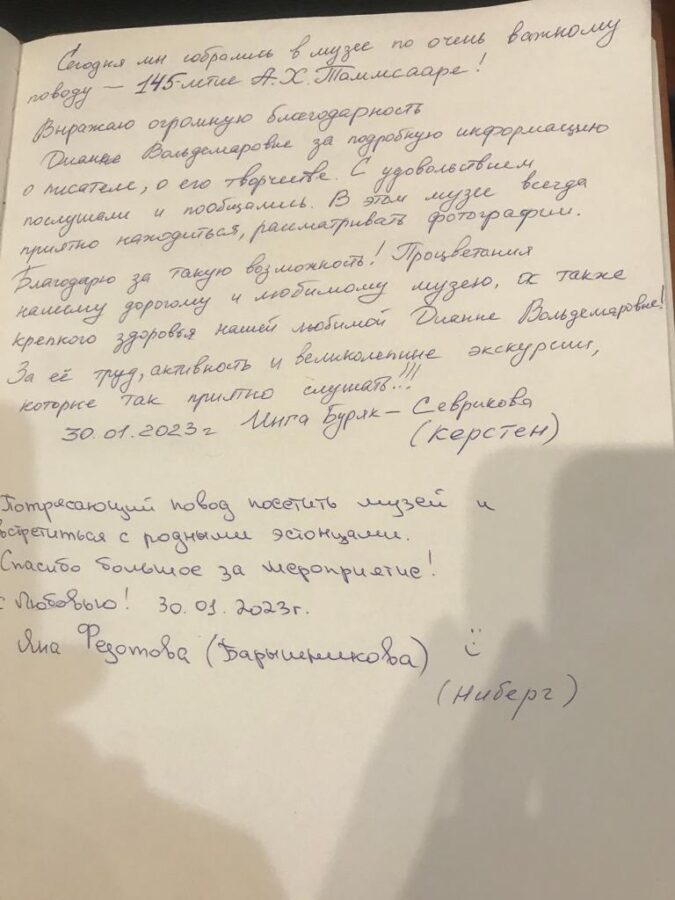 Сегодня мы собрались в музее по очень важному
поводу – 145-летие А.Х.Таммсааре!
Выражаю огромную благодарность
Дианне Вольдемаровне за подробную информацию
о писателе, о его творчестве. С удовольствием
послушали и пообщались. В этом музее всегда
приятно находиться, рассматривать фотографии.
Благодарю за такую возможность! Процветания
нашему дорогому и любимому музею, а также
крепкого здоровья нашей любимой Дианне Вольдемаровне!
За её труд, активность и великолепные экскурсии,
которые так приятно слушать!!!
30.01.2023г Инга Буряк – Севрикова
(Керстен)
Потрясающий повод посетить музей и
встретиться с родными эстонцами.
Спасибо большое за мероприятие!
с Любовью! 30.01.2023г.
Яна Федотова (Барышникова)
(Ниберг)